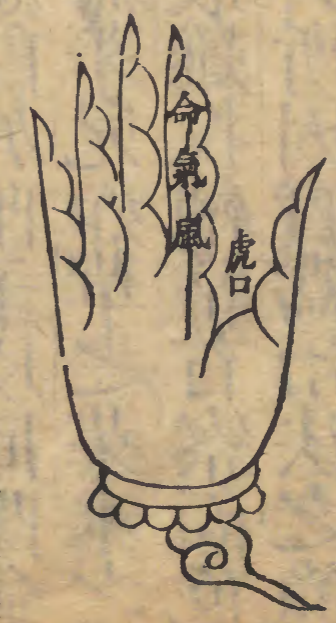 命氣風
虎口